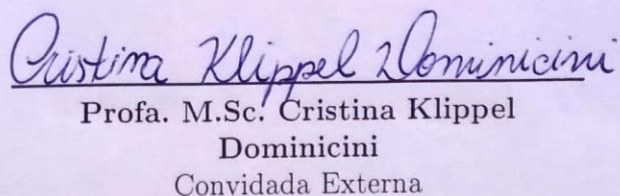 Cristina Klippel Dominicini
Profa. M.Sc. Cristina Klippel
Dominicini
Convidada Externa